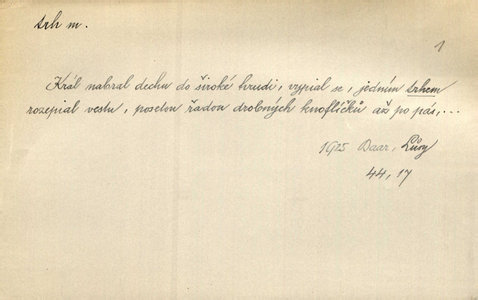 trh m.
1
Král nabral dechu do široké hrudi, vypial se, jedním trhem
rozepial vestu, posetou řadou drobných knoflíčků až po pás,...
1915 Baar, Lůsy
44, 17